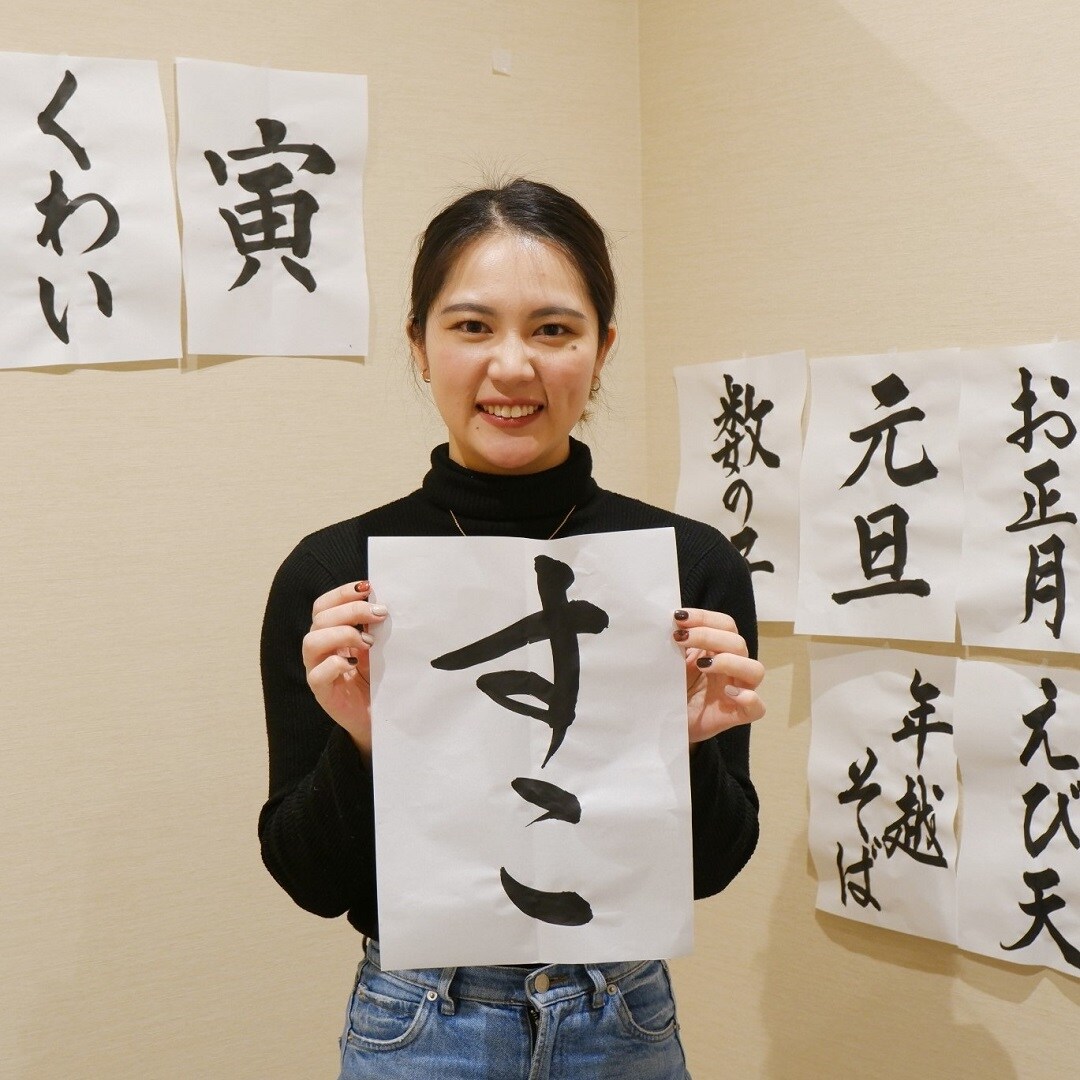 くわい
寅
すこ
数の子
元旦
お正月
年越
そば
えび天